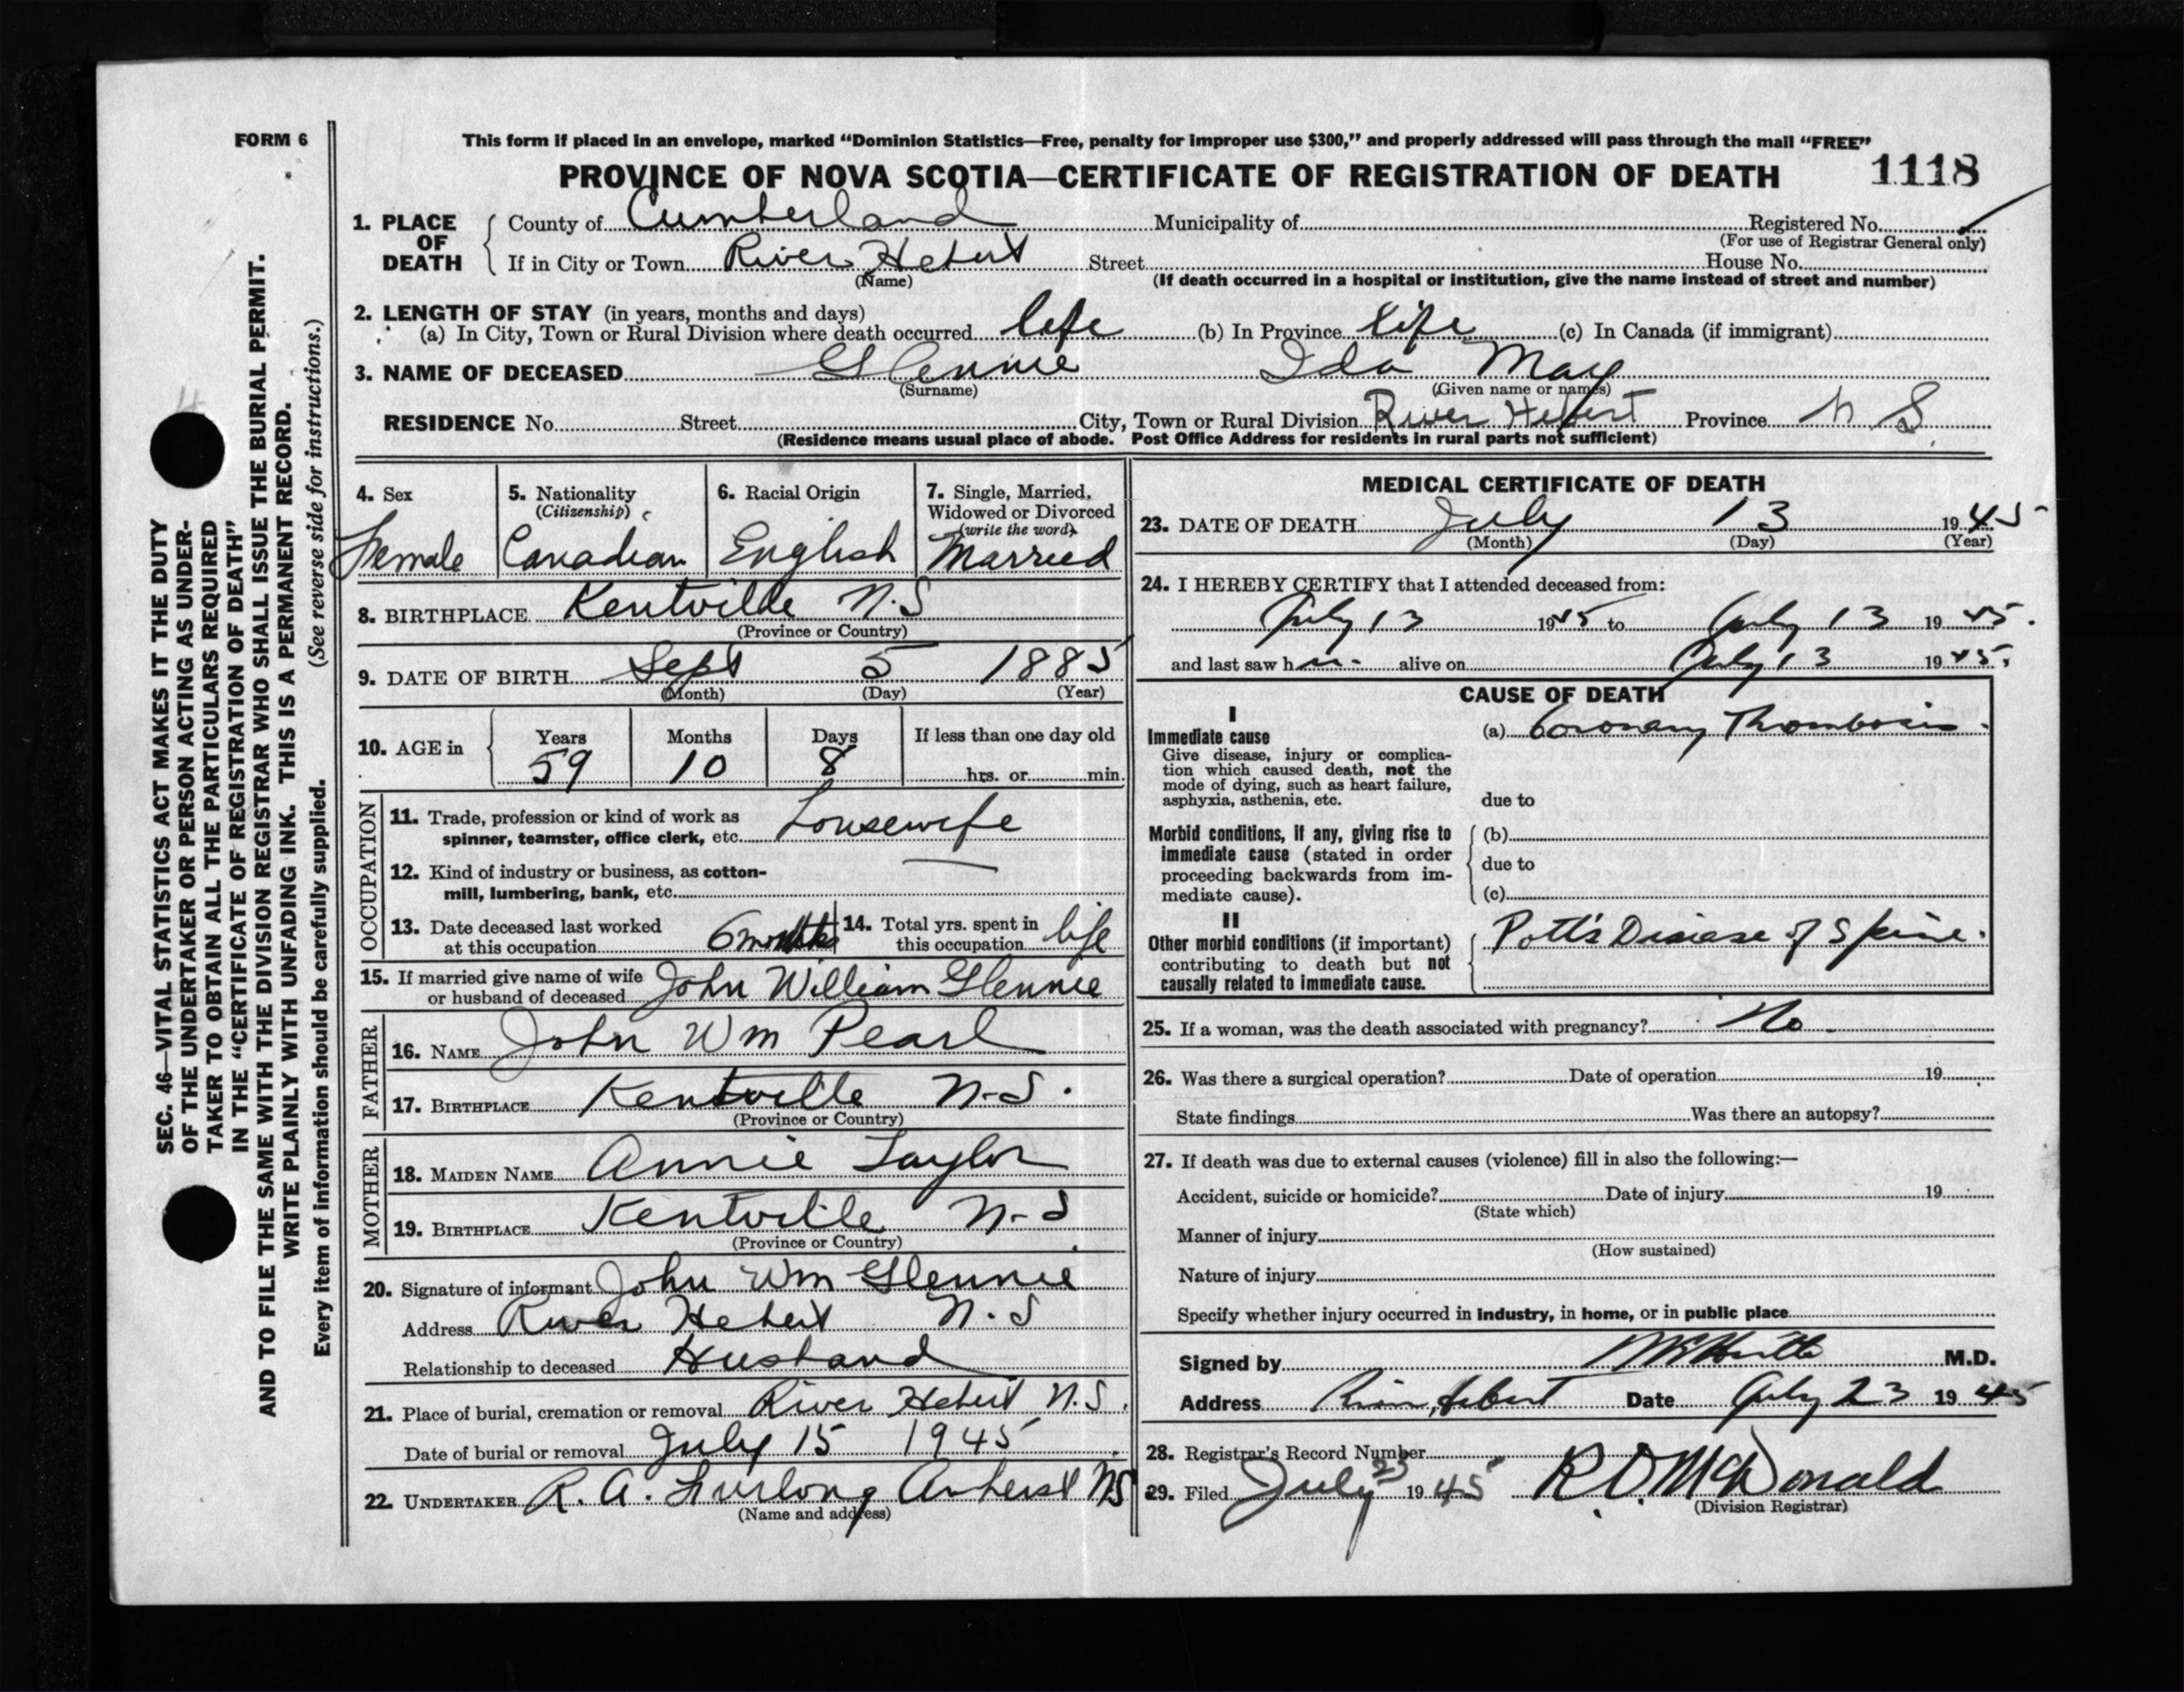 FORM 6
This form if placed in an envelope, marked “Dominion Statistics—Free, penalty for improper use $300,” and properly addressed will pass through the mail “FREE”
PROVINCE OF NOVA SCOTIA—CERTIFICATE OF REGISTRATION OF DEATH 1118
1. PLACE OF DEATH County of Cumberland Municipality of Registered No.
(For use of Registrar General only)
If in City or Town River Hebert Street House No.
(Name) (If death occurred in a hospital or institution, give the name instead of street and number)
2. LENGTH OF STAY (in years, months and days)
(a) In City, Town or Rural Division where death occurred life (b) In Province life (c) In Canada (if immigrant)
3. NAME OF DECEASED Glennie Ida May
(Surname) (Given name or names)
RESIDENCE No. Street City, Town or Rural Division River Hebert Province N S.
(Residence means usual place of abode. Post Office Address for residents in rural parts not sufficient)
4. Sex
Female
5. Nationality
(Citizenship)
Canadian
6. Racial Origin
English
7. Single, Married,
Widowed or Divorced
(write the word)
Married
8. BIRTHPLACE Kentville N.S
(Province or Country)
9. DATE OF BIRTH Sept 5 1885
(Month) (Day) (Year)
10. AGE in Years Months Days If less than one day old
59 10 8 hrs. or min.
OCCUPATION
11. Trade, profession or kind of work as
spinner, teamster, office clerk, etc. Housewife
12. Kind of industry or business, as cotton-
mill, lumbering, bank, etc. —
13. Date deceased last worked
at this occupation 6 months
14. Total yrs. spent in
this occupation life
15. If married give name of wife
or husband of deceased John William Glennie
FATHER
16. NAME John Wm Pearl
17. BIRTHPLACE Kentville N-S.
(Province or Country)
MOTHER
18. MAIDEN NAME Annie Taylor
19. BIRTHPLACE Kentville N-S
(Province or Country)
20. Signature of informant John Wm Glennie
Address River Hebert N.S
Relationship to deceased Husband
21. Place of burial, cremation or removal River Hebert N.S.
Date of burial or removal July 15 1945
22. UNDERTAKER R. A. Furlong Amherst NS
(Name and address)
MEDICAL CERTIFICATE OF DEATH
23. DATE OF DEATH July 13 1945
(Month) (Day) (Year)
24. I HEREBY CERTIFY that I attended deceased from:
July 13 1945 to July 13 1945.
and last saw her alive on July 13 1945.
CAUSE OF DEATH
I
Immediate cause (a) Coronary Thrombosis.
Give disease, injury or complica-
tion which caused death, not the
mode of dying, such as heart failure,
asphyxia, asthenia, etc. due to
Morbid conditions, if any, giving rise to (b)
immediate cause (stated in order
proceeding backwards from im- due to
mediate cause). (c)
II
Other morbid conditions (if important) Pott's Disease of Spine.
contributing to death but not
causally related to immediate cause.
25. If a woman, was the death associated with pregnancy? No.
26. Was there a surgical operation? Date of operation 19
State findings Was there an autopsy?
27. If death was due to external causes (violence) fill in also the following:—
Accident, suicide or homicide? Date of injury 19
(State which)
Manner of injury
(How sustained)
Nature of injury
Specify whether injury occurred in industry, in home, or in public place
Signed by M.D.
Address River Hebert Date July 23 1945
28. Registrar's Record Number
29. Filed July 23 1945 R.D. McDonald
(Division Registrar)
SEC. 46—VITAL STATISTICS ACT MAKES IT THE DUTY
OF THE UNDERTAKER OR PERSON ACTING AS UNDER-
TAKER TO OBTAIN ALL THE PARTICULARS REQUIRED
IN THE “CERTIFICATE OF REGISTRATION OF DEATH”
AND TO FILE THE SAME WITH THE DIVISION REGISTRAR WHO SHALL ISSUE THE BURIAL PERMIT.
WRITE PLAINLY WITH UNFADING INK. THIS IS A PERMANENT RECORD.
Every item of information should be carefully supplied. (See reverse side for instructions.)